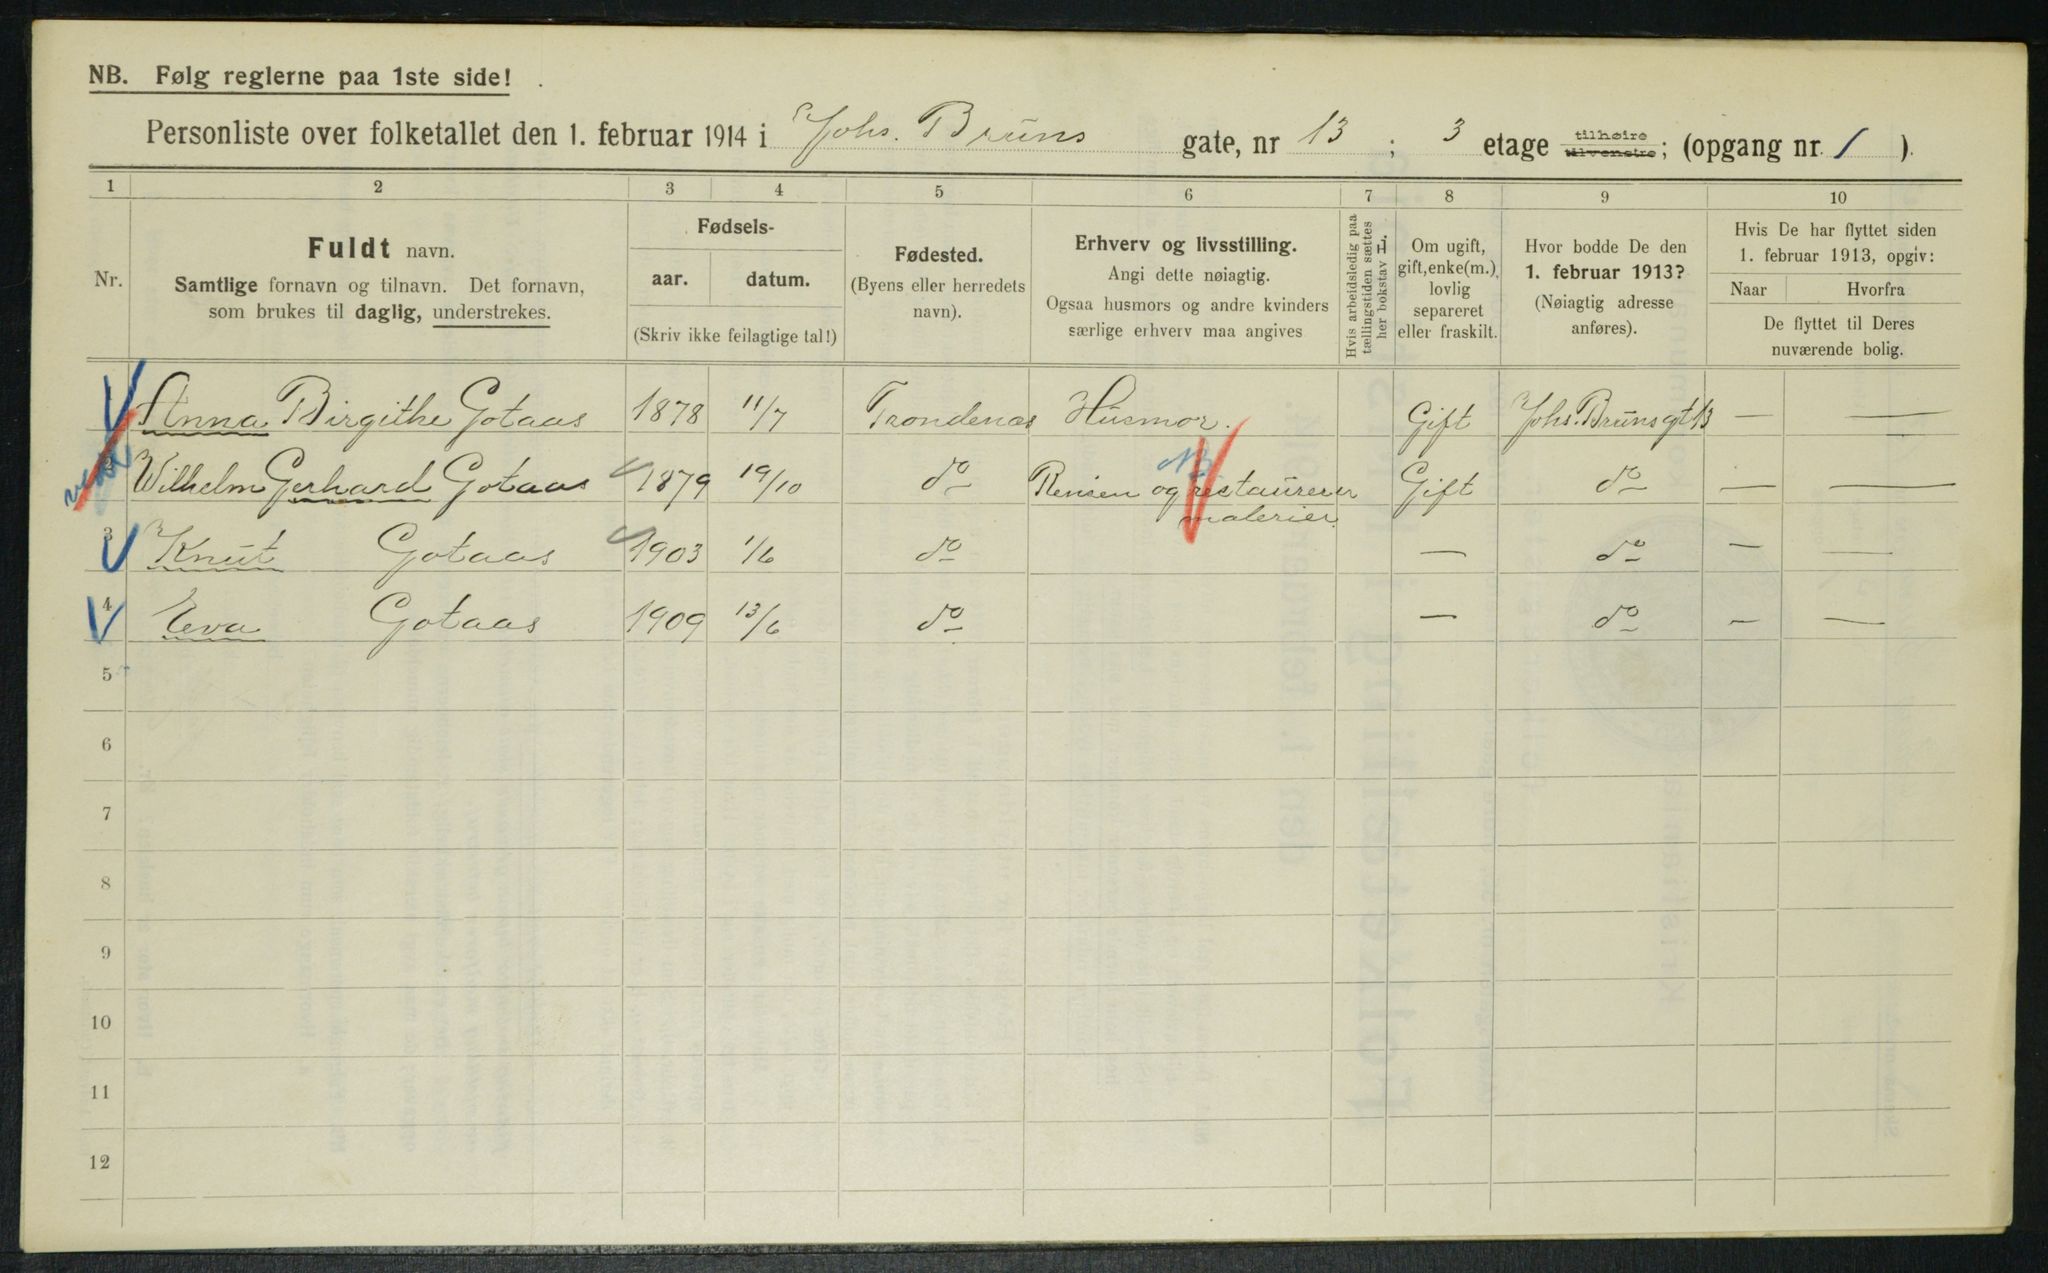 NB. Følg reglerne paa 1ste side!
Personliste over folketallet den 1. februar 1914 i Johs. Bruns gate, nr 13 ; 3 etage tilhøire tilvenstre; (opgang nr. 1 ).
1 2 3 4 5 6 7 8 9 10
Nr.
Fuldt navn.
Samtlige fornavn og tilnavn. Det fornavn,
som brukes til daglig, understrekes.
Fødsels-
aar. datum.
(Skriv ikke feilagtige tal!)
Fødested.
(Byens eller herredets
navn).
Erhverv og livsstilling.
Angi dette nøiagtig.
Ogsaa husmors og andre kvinders
særlige erhverv maa angives
Hvis arbeidsledig paa
tællingstiden sættes
her bokstav L.
Om ugift,
gift, enke(m.),
lovlig
separeret
eller fraskilt.
Hvor bodde De den
1. februar 1913?
(Nøiagtig adresse
anføres).
Hvis De har flyttet siden
1. februar 1913, opgiv:
Naar Hvorfra
De flyttet til Deres
nuværende bolig.
1 Anna Birgithe Gotaas 1878 11/7 Trondenæs Husmor. Gift Johs. Brunsgt 13 — —
2 Wilhelm Gerhard Gotaas 1879 19/10 do Rensen og restaurerer Gift do — —
malerier.
3 Knut Gotaas 1903 1/6 do — do — —
4 Eva Gotaas 1909 13/6 do — do — —
5
6
7
8
9
10
11
12